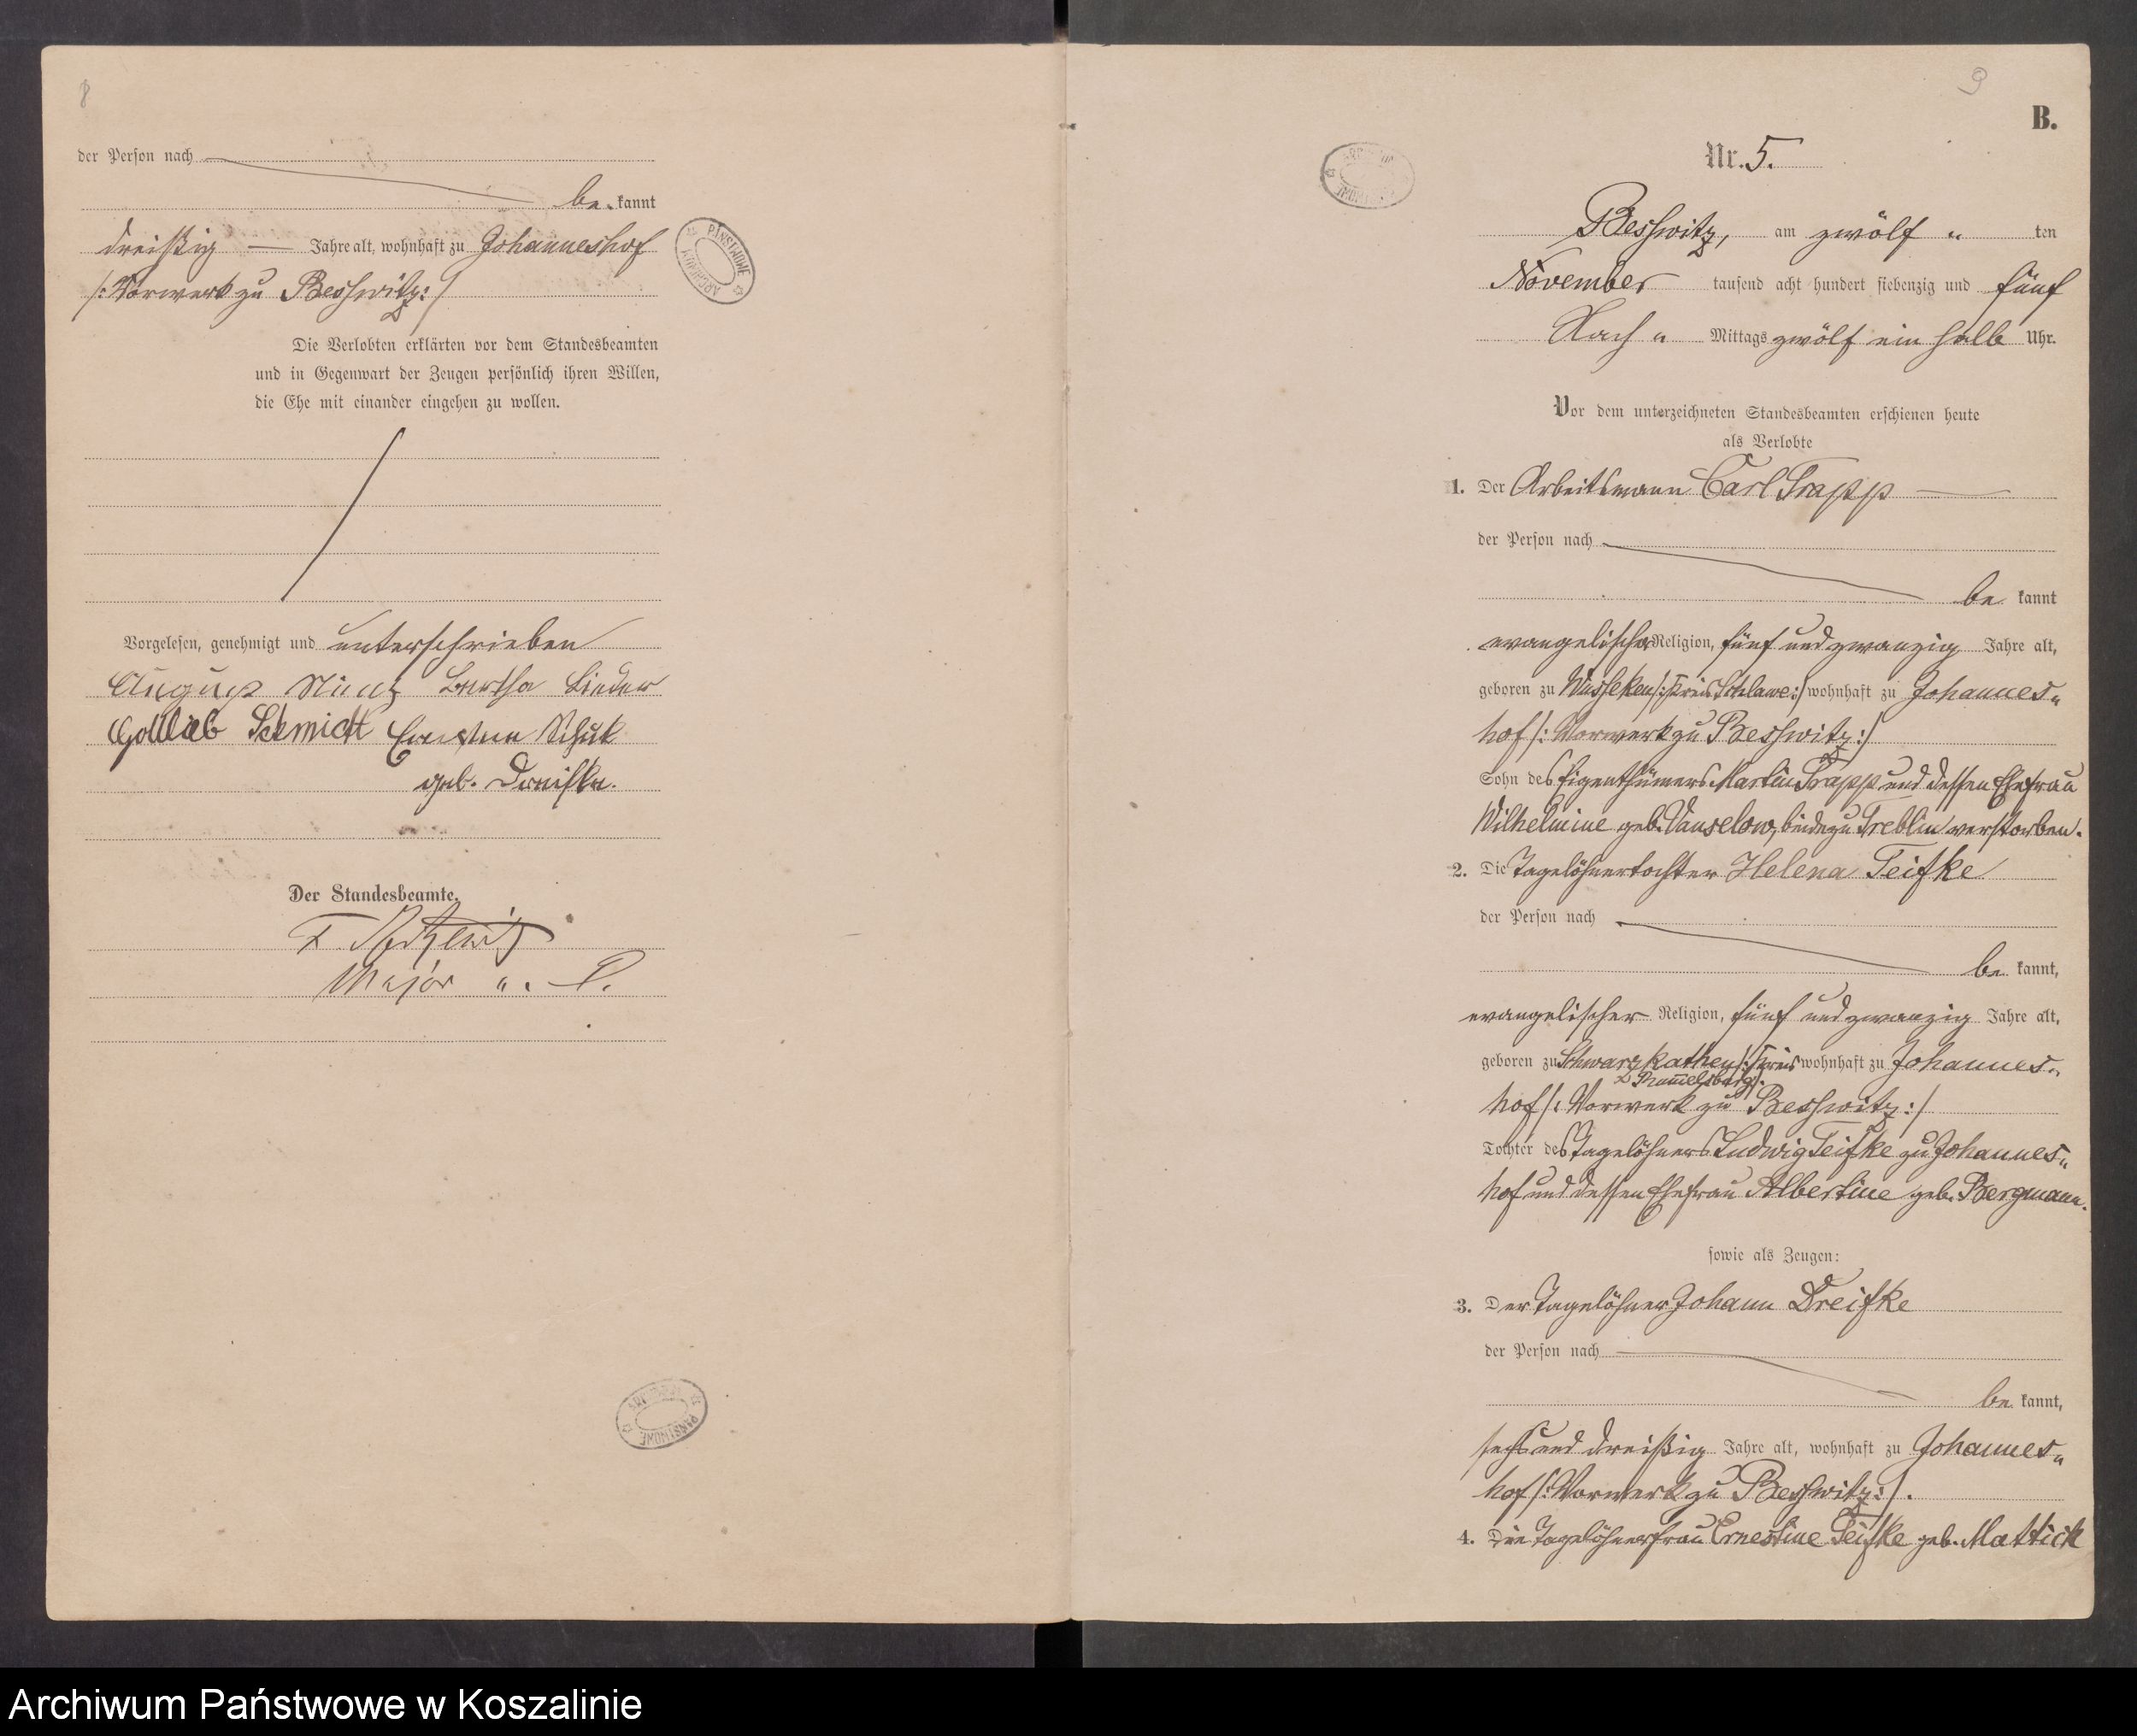 8
der Person nach
be kannt
dreißig — Jahre alt, wohnhaft zu Johanneshof
/: Vorwerk zu Besswitz :/
Die Verlobten erklärten vor dem Standesbeamten
und in Gegenwart der Zeugen persönlich ihren Willen,
die Ehe mit einander eingehen zu wollen.
Vorgelesen, genehmigt und unterschrieben
August Bertha
Gottlieb Schmidt
geb.
Der Standesbeamte.
Major a. D.
PAŃSTWOWE ARCHIWUM
9
B.
Nr. 5.
Besswitz, am zwölf ten
November tausend acht hundert siebenzig und fünf
Nach Mittags zwölf ein halb Uhr.
Vor dem unterzeichneten Standesbeamten erschienen heute
als Verlobte
1. Der Arbeitsmann Carl Trapp
der Person nach
be kannt
evangelischer Religion, fünf und zwanzig Jahre alt,
geboren zu Wusseken /: Kreis Schlawe :/ wohnhaft zu Johannes-
hof /: Vorwerk zu Besswitz :/
Sohn des Eigenthümers Martin Trapp und dessen Ehefrau
Wilhelmine geb. Vanselow, beide zu Treblin verstorben.
2. Die Tagelöhnertochter Helena Teifke
der Person nach
be kannt,
evangelischer Religion, fünf und zwanzig Jahre alt,
geboren zu Schwarzkathen /: Kreis wohnhaft zu Johannes-
Rummelsburg :/
hof /: Vorwerk zu Besswitz :/
Tochter des Tagelöhners Ludwig Teifke zu Johannes-
hof und dessen Ehefrau Albertine geb. Bergmann.
sowie als Zeugen:
3. Der Tagelöhner Johann Dreifke
der Person nach
be kannt,
sechs und dreißig Jahre alt, wohnhaft zu Johannes-
hof /: Vorwerk zu Besswitz :/.
4. Die Tagelöhnerfrau Ernestine Teifke geb. Mattick
Archiwum Państwowe w Koszalinie